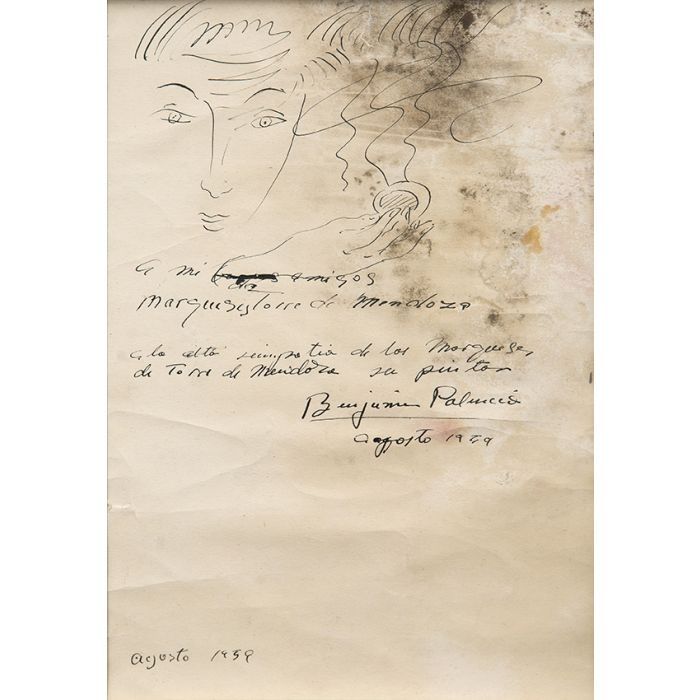 a mi amigos
Marqueses Torre de Mendoza
a la alta simpatia de los Marqueses
de Torre de Mendoza su pintor
Benjamin Palencia
agosto 1959
agosto 1959